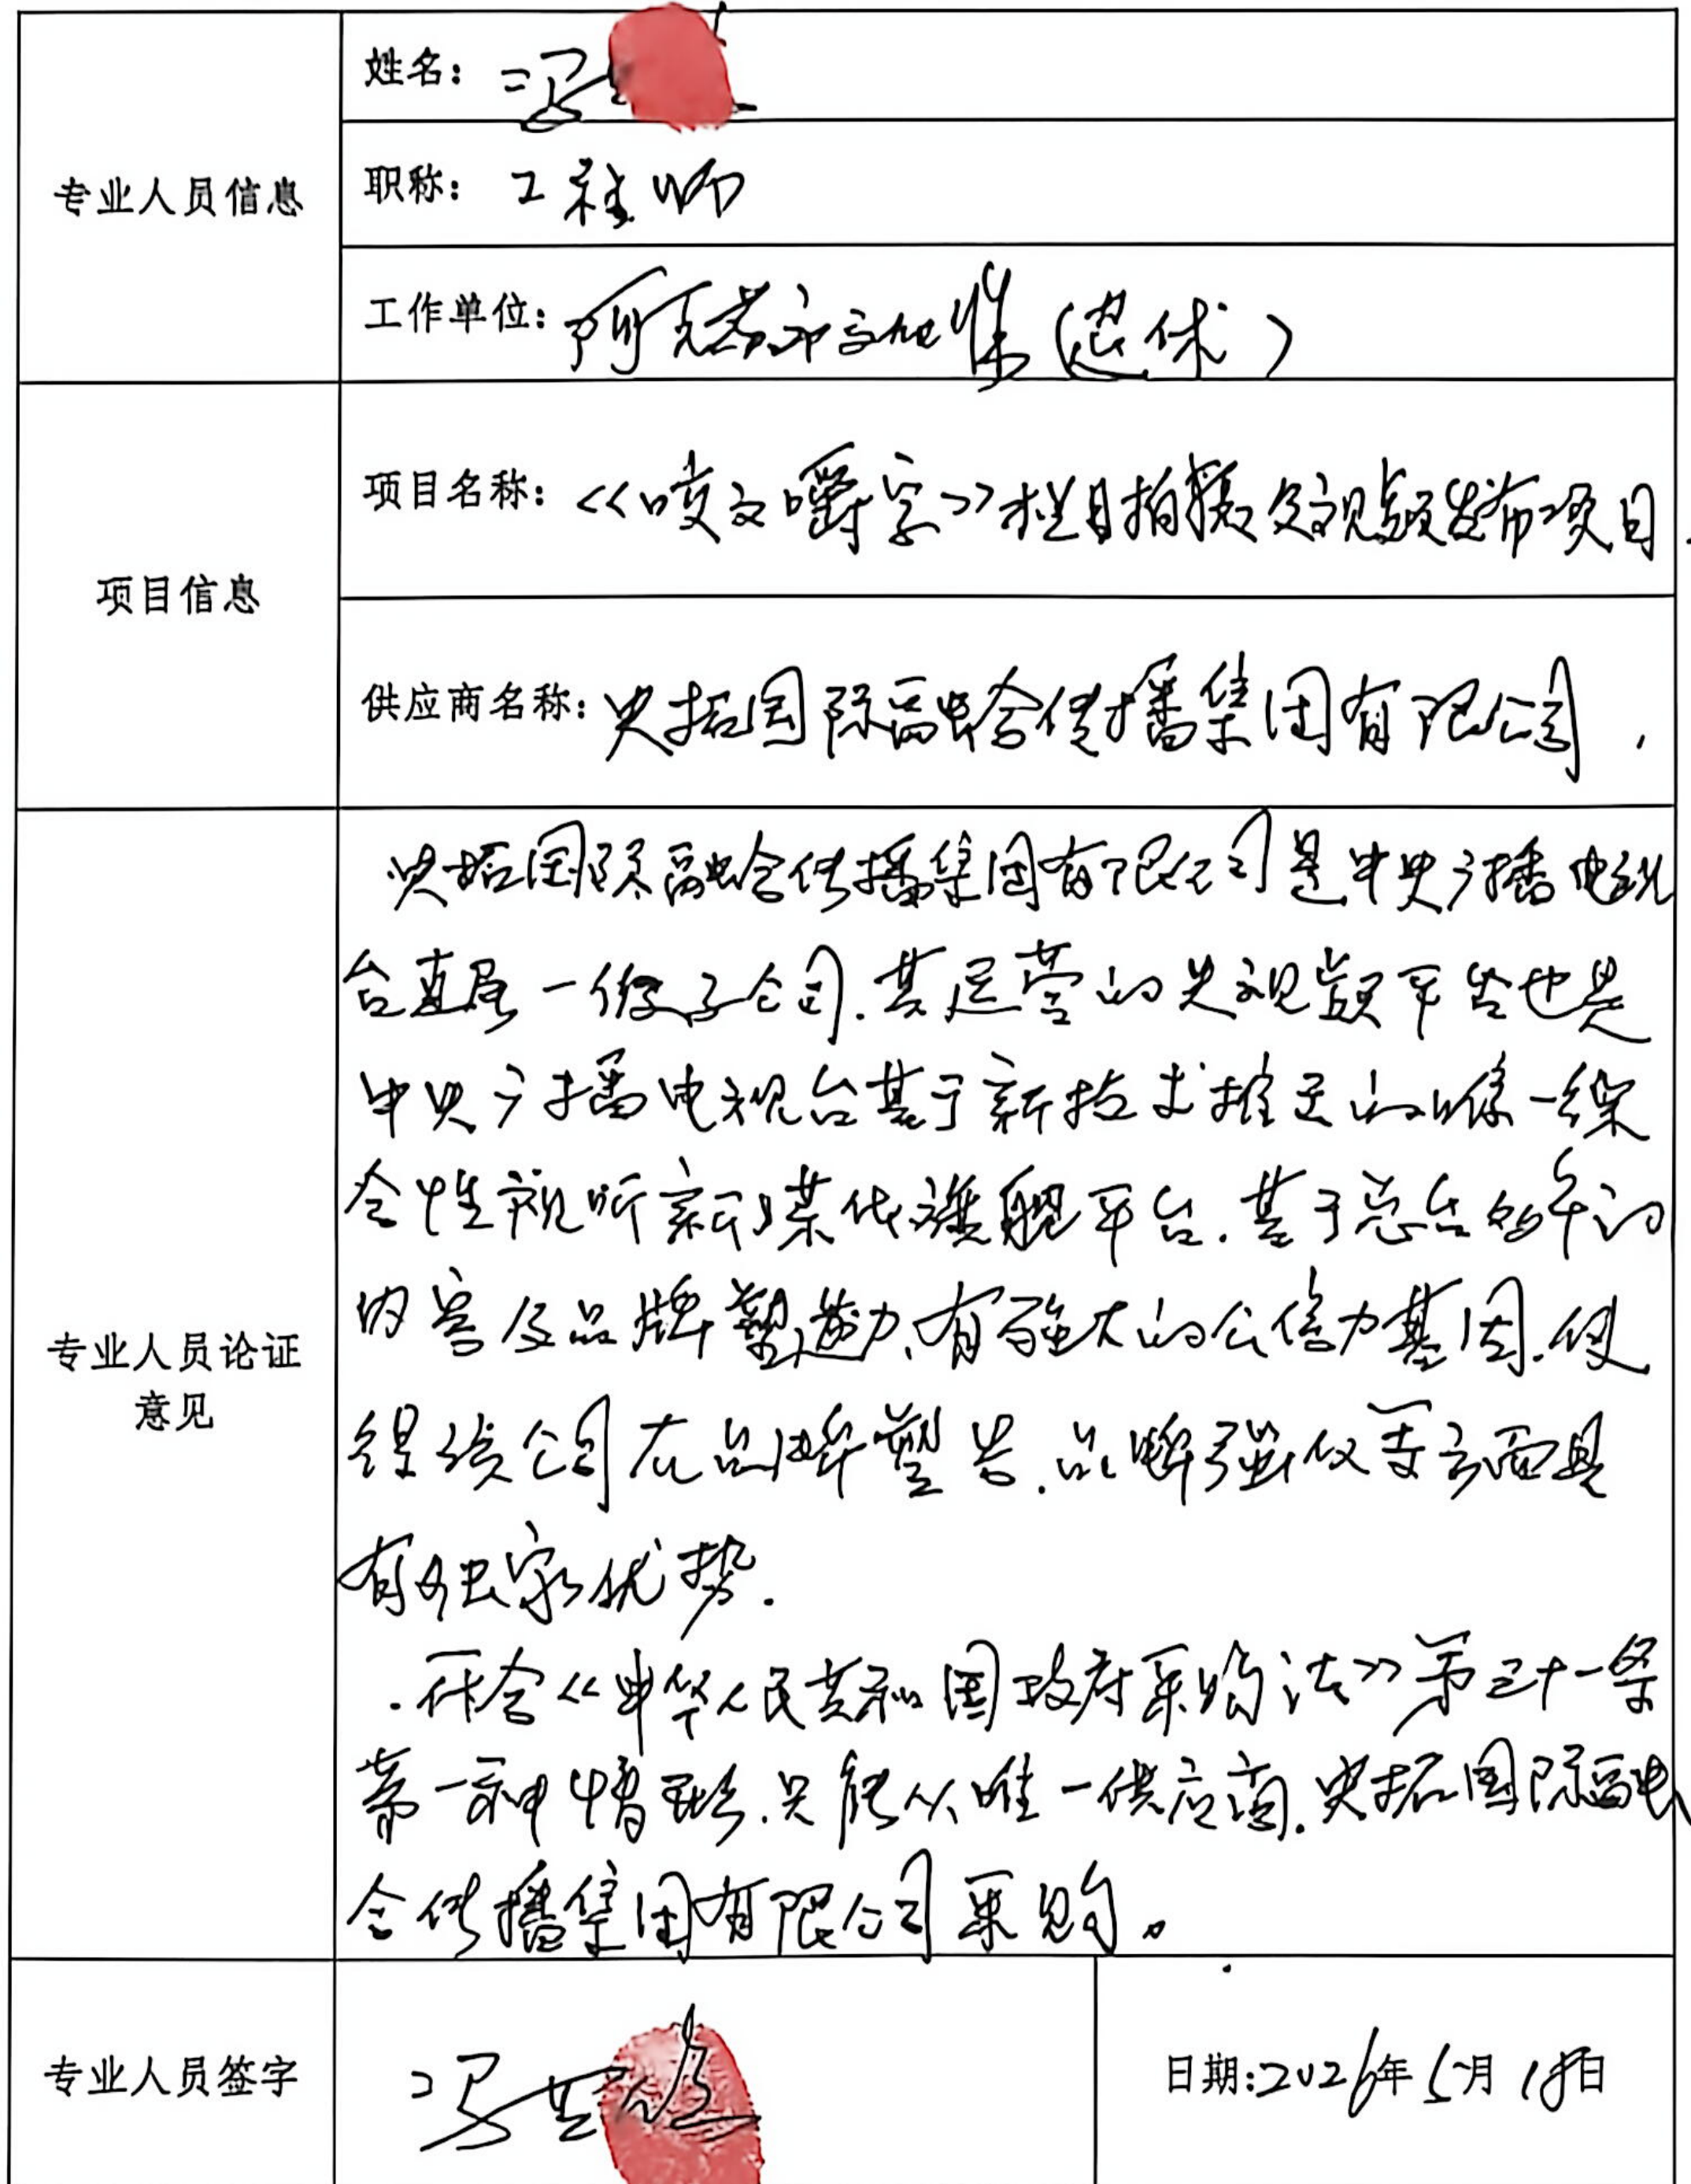 专业人员信息
姓名：冯
职称：工程师
工作单位：阿克苏市文化馆（退休）
项目信息
项目名称：《咬文嚼字》栏目拍摄及视频发布项目
供应商名称：央拓国际融合传播集团有限公司
专业人员论证
意见
央拓国际融合传播集团有限公司是中央广播电视
台直属一级子公司.其运营的央视频平台也是
中央广播电视台基于新技术推送的唯一综
合性视听新媒体旗舰平台.基于总台多年的
内容及品牌塑造力、有强大的公信力基因.使
得该公司在品牌塑造.品牌强仪等方面具
有独家优势.
符合《中华人民共和国政府采购法》第三十一条
第一种情形.只能从唯一供应商.央拓国际融
合传播集团有限公司采购。
专业人员签字
冯
日期:2026年5月18日